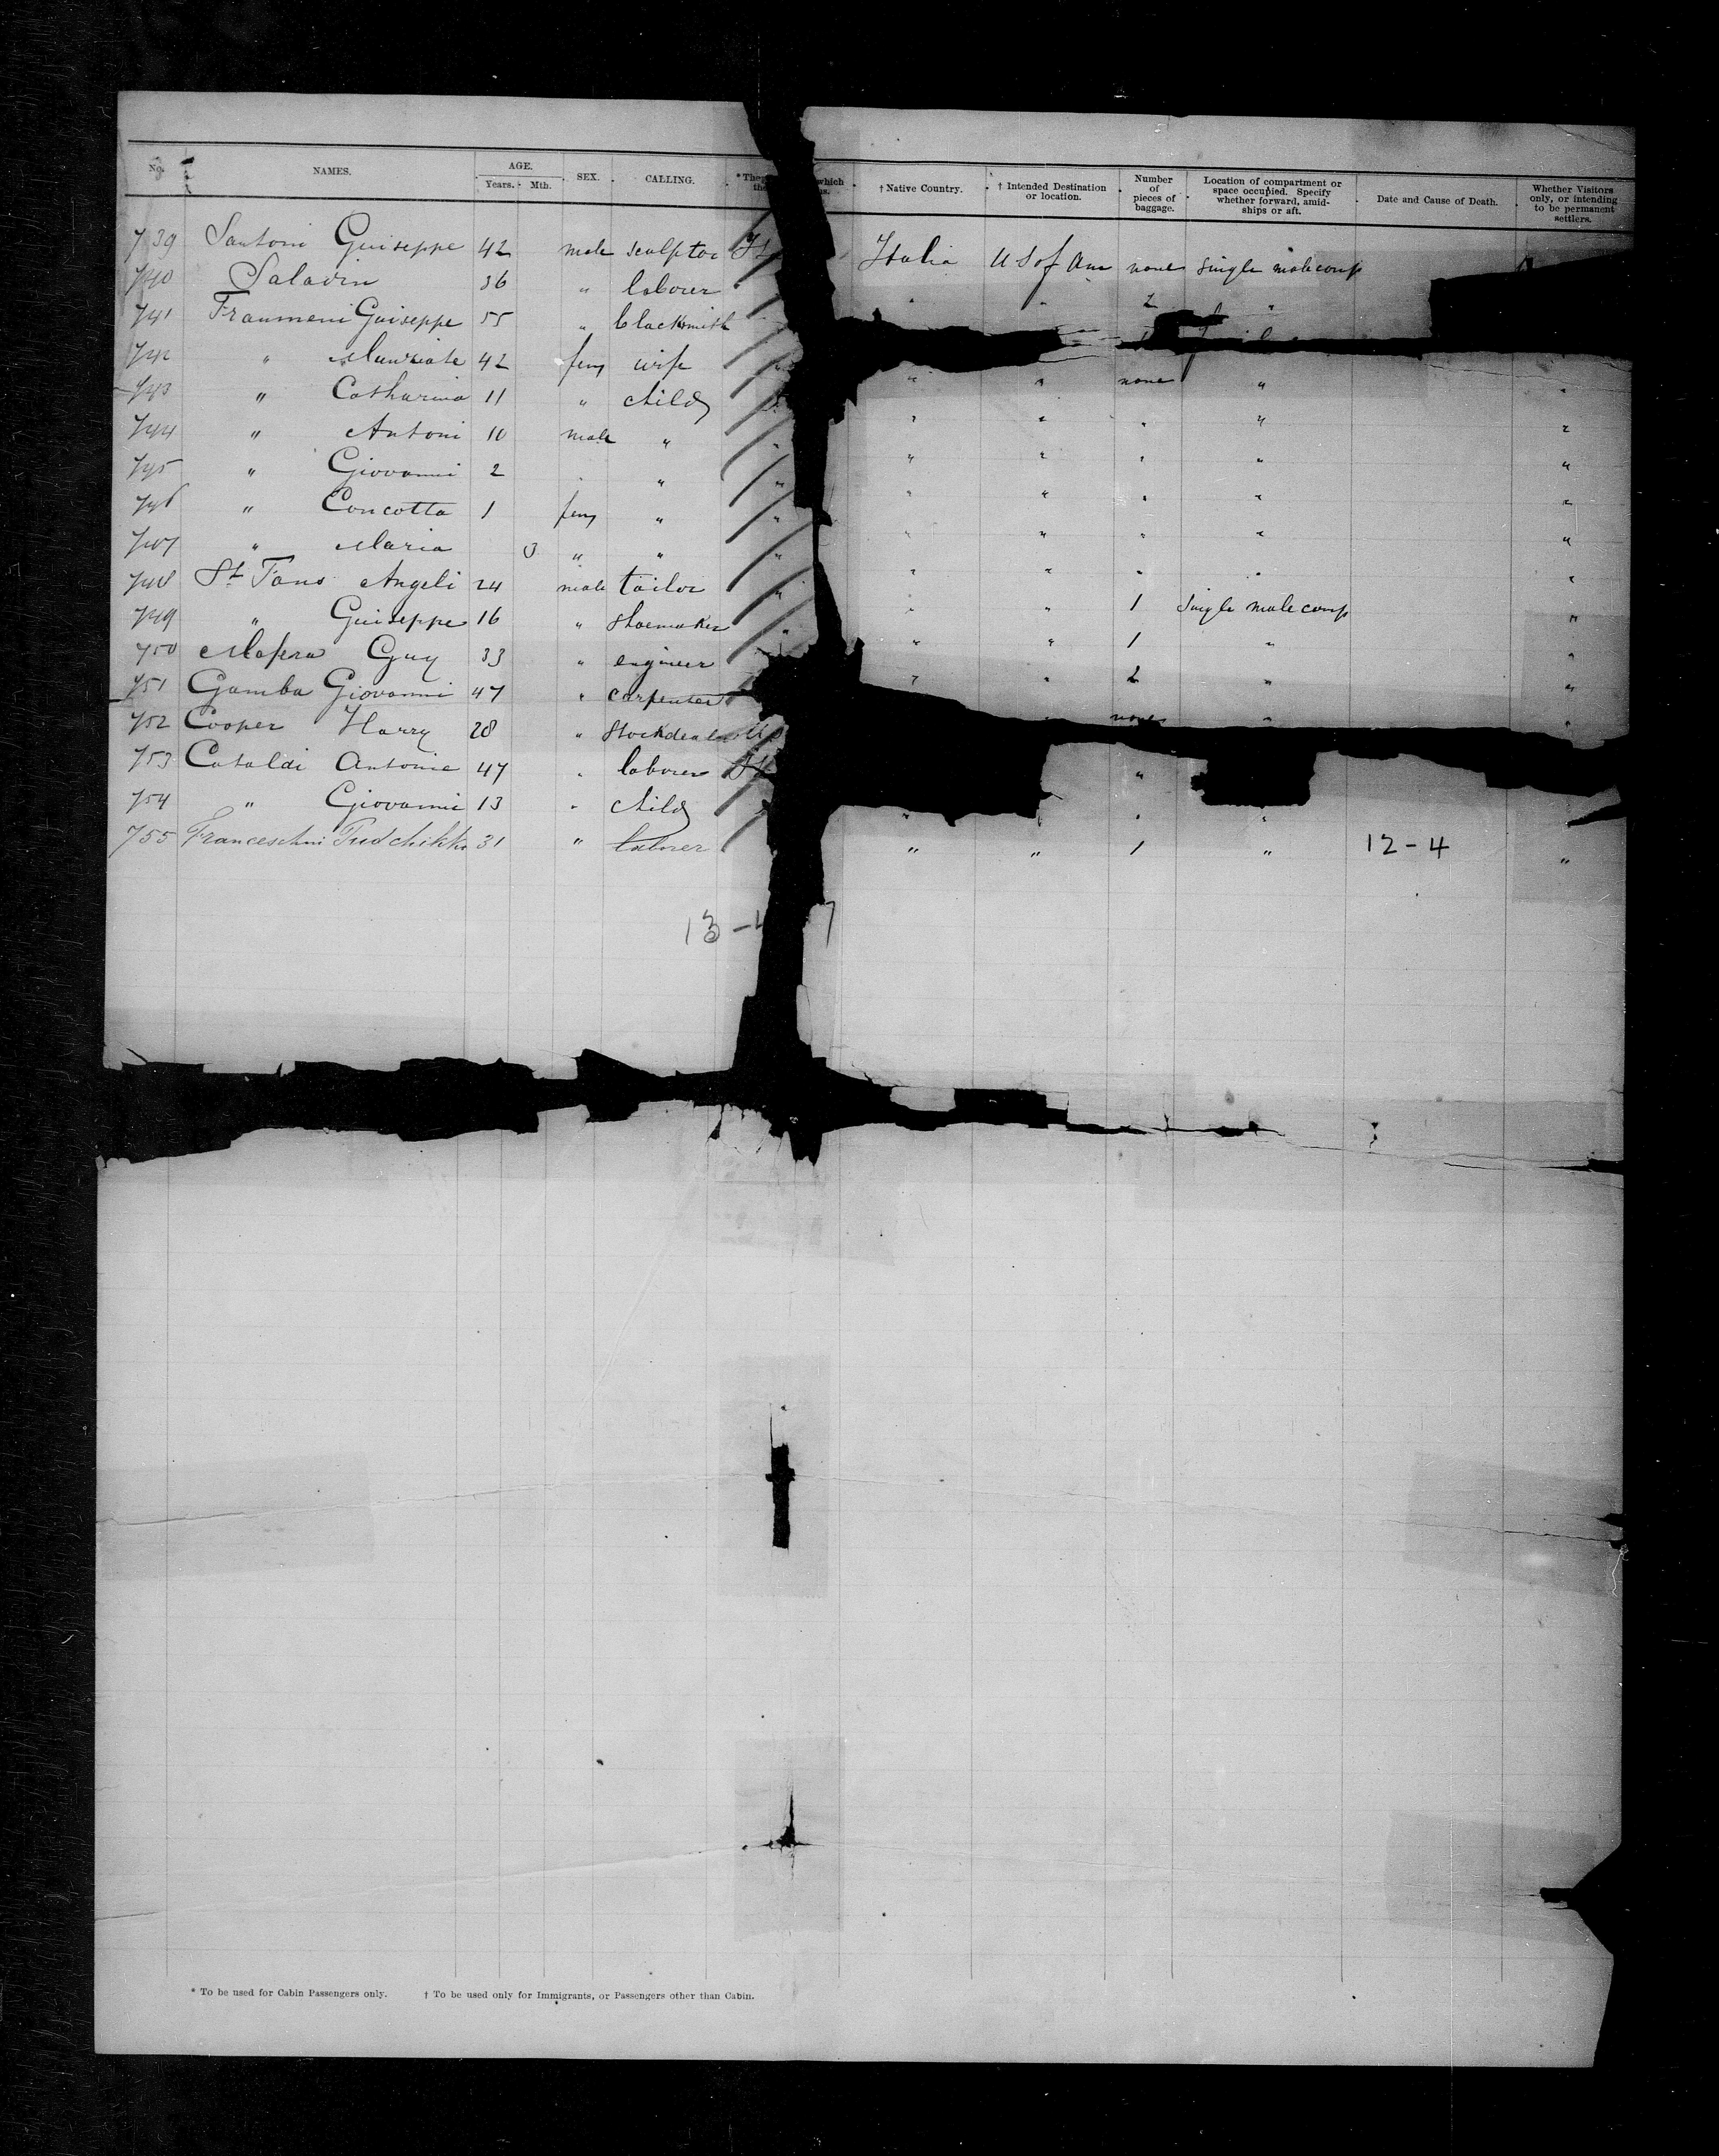 No. NAMES. AGE. Years. Mth. SEX. CALLING. † Native Country. † Intended Destination or location. Number of pieces of baggage. Location of compartment or space occupied. Specify whether forward, amidships or aft. Date and Cause of Death. Whether Visitors only, or intending to be permanent settlers.
739 Santoni Guiseppe 42 male sculptor It Italia U S of Am none single male comp
740 Saladin 36 " laborer " " 2 "
741 Fraumeni Guiseppe 55 " blacksmith
742 " 42 fem wife " " " none " "
743 " Catharina 11 " child " " " " "
744 " Antoni 10 male " " " " " " "
745 " Giovanni 2 " " " " " " " "
746 " Concotta 1 fem " " " " " " "
747 " Maria 3 " " " " " " " "
748 St Fano Angeli 24 male tailor " " " 1 single male comp "
749 " Guiseppe 16 " shoemaker " " " 1 " "
750 Guy 33 " engineer " " 2 " "
751 Gamba Giovanni 47 " carpenter " none " "
752 Cooper Harry 28 " Stockdealer US
753 Cataldi Antonio 47 " laborer It "
754 " Giovanni 13 " child " " " " "
755 Franceschini 31 " laborer " " 1 " 12-4 "
13-
* To be used for Cabin Passengers only. † To be used only for Immigrants, or Passengers other than Cabin.